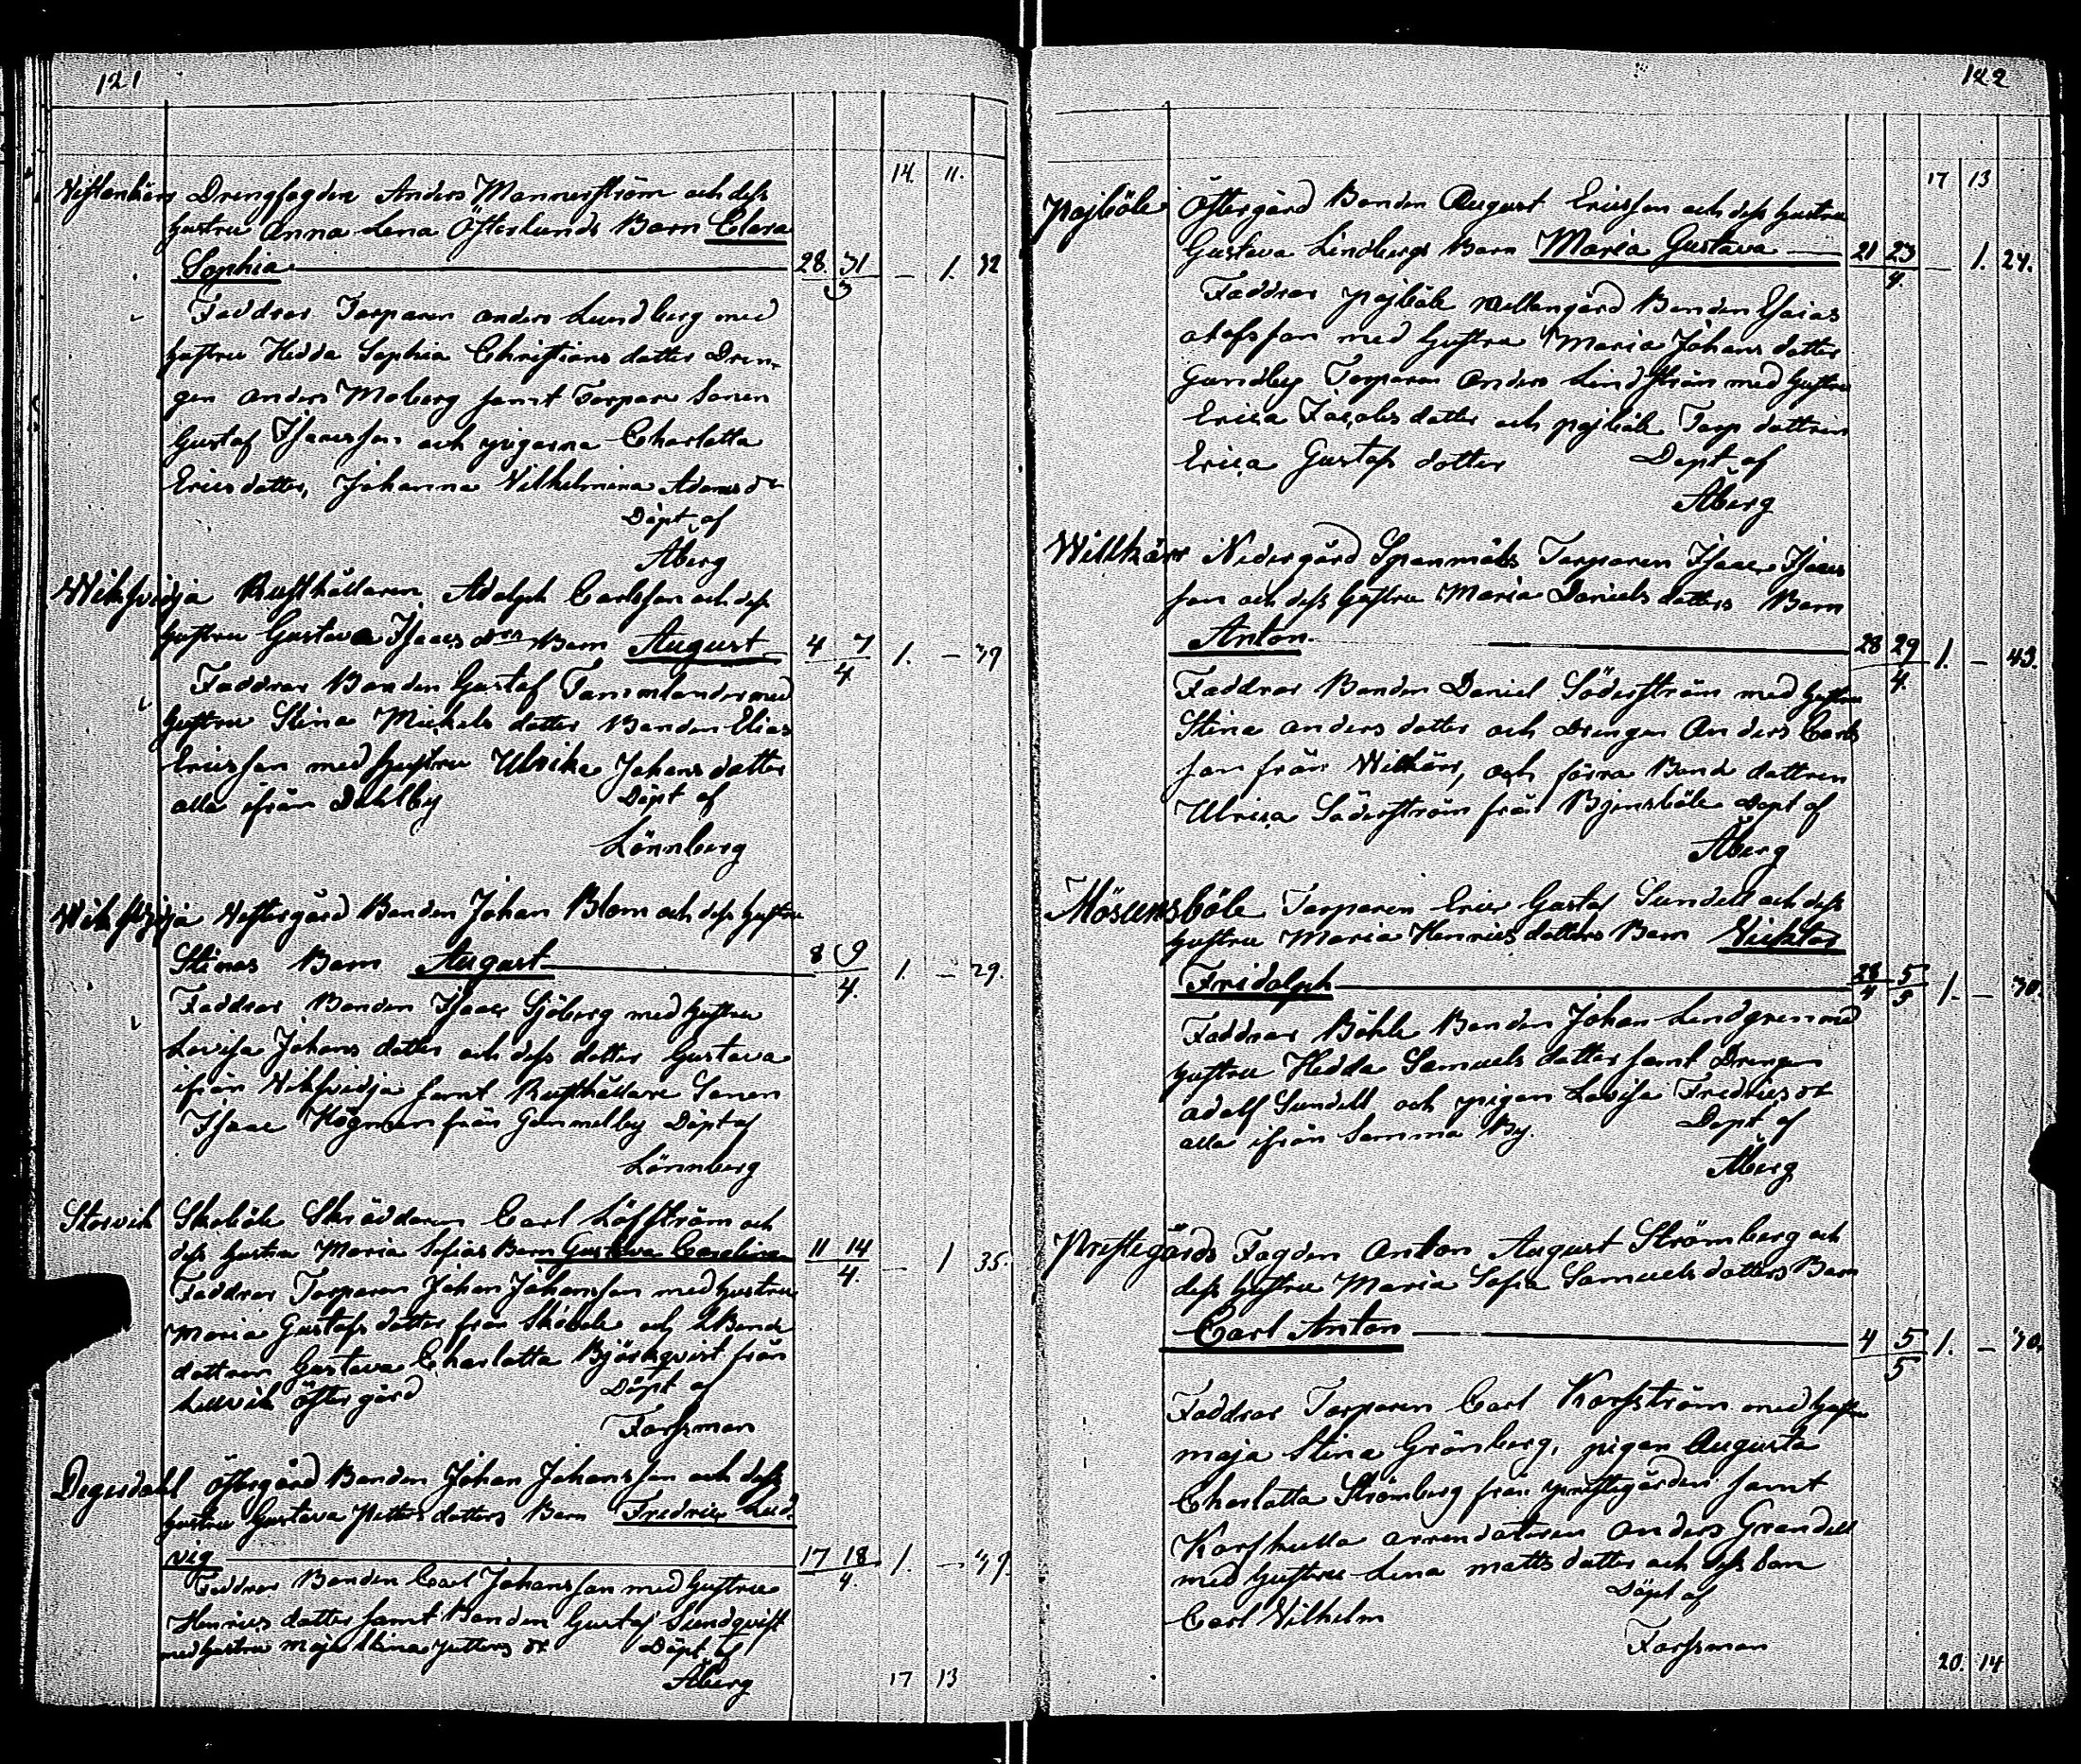 121
14. 11.
Westankärr Drengfogden Anders Mannerström och dess
hustru Anna Lena Österlunds Barn Clara
Sophia 28. 31 3 — 1. 32
Faddrar Torparen Anders Lundberg med
hustru Hedda Sophia Christians dotter Dren-
gen Anders Moberg samt Torpare Sonen
Gustaf Isacsson och pigorna Charlotta
Ericsdotter, Johanna Vilhelmina Adams dr
Döpt af
Åberg
Wiksvidja Rusthållaren Adolph Carlsson och dess
hustru Gustava Isaacs drs Barn August 4 7 4. 1. — 39
Faddrar Bonden Gustaf Tammelander med
hustru Stina Mickels dotter Bonden Elias
Ericsson med hustru Ulrika Johans dotter
alla ifrån Dahlby Döpt af
Lönnberg
Wiksvidja Westergård Bonden Johan Blom och dess hustru
Stinas Barn August 8 9 4. 1. — 29.
Faddrar Bonden Isaac Sjöberg med hustru
Lovisa Johans dotter och dess dotter Gustava
ifrån Wiksvidja samt Rusthållare Sonen
Isaac Högman från Gammelby Döpt af
Lönnberg
Storvik Skoböle Skräddaren Carl Löfström och
dess hustru Maria Sofias Barn Gustava Carolina 11 14 4. — 1 35.
Faddrar Torparen Johan Johansson med hustru
Maria Gustafs dotter från Skoböle och Bonde
dottren Gustava Charlotta Björkqvist från
Lillvik Östergård Döpt af
Forssman
Degerdahl Östergård Bonden Johan Johansson och dess
hustru Gustava Petters dotters Barn Fredric Lud-
vig 17 18 4. 1. — 39.
Faddrar Bonden Carl Johansson med hustru
Henrics dotter samt Bonden Gustaf Sundqvist
med hustru Maja Stina dr Döpt af
Åberg
17 13
122
17 13
Pojböle Östergård Bonden August Ericsson och dess hustru
Gustava Lindbergs Barn Maria Gustava 21 23 4. — 1. 24.
Faddrar Pojböle Mellangård Bonden Esaias
Olofsson med hustru Maria Johans dotter
Gundby Torparen Anders Lindström med hustru
Erica Jacobs dotter och Pojböle Torp dottren
Erica Gustafs dotter Döpt af
Åberg
Willkärr Nedergård Spanmåls Torparen Isaac Isaacs
son och dess hustru Maria Daniels dotters Barn
Anton 28 29 4. 1. — 43.
Faddrar Bonden Daniel Söderström med hustru
Stina Anders dotter och Drengen Anders Carls
son från Wilkärr, och förra Bonde dottren
Ulrica Söderström från Björnsböle Döpt af
Åberg
Mösunsböle Torparen Eric Gustaf Sundell och dess
hustru Maria Henrics dotters Barn Vicktor
Fridolph 28 4 5 5 1. — 30.
Faddrar Böhle Bonden Johan Lindgren med
hustru Hedda Samuels dotter samt Drengen
Adolf Sundell och pigan Lovisa Fredrics dr
alla ifrån samma By. Döpt af
Åberg
Prestegårds Fogden Anton August Strömberg och
dess hustru Maria Sofia Samuels dotters Barn
Carl Anton 4 5 5 1. — 30.
Faddrar Torparen Carl Korsström med hustru
Maja Stina Grönberg, pigan Augusta
Charlotta Strömberg från prestegården samt
Korskulla arrendatoren Anders Grandell
med hustru Lena Matts dotter och dess son
Carl Vilhelm Döpt af
Forssman
20. 14